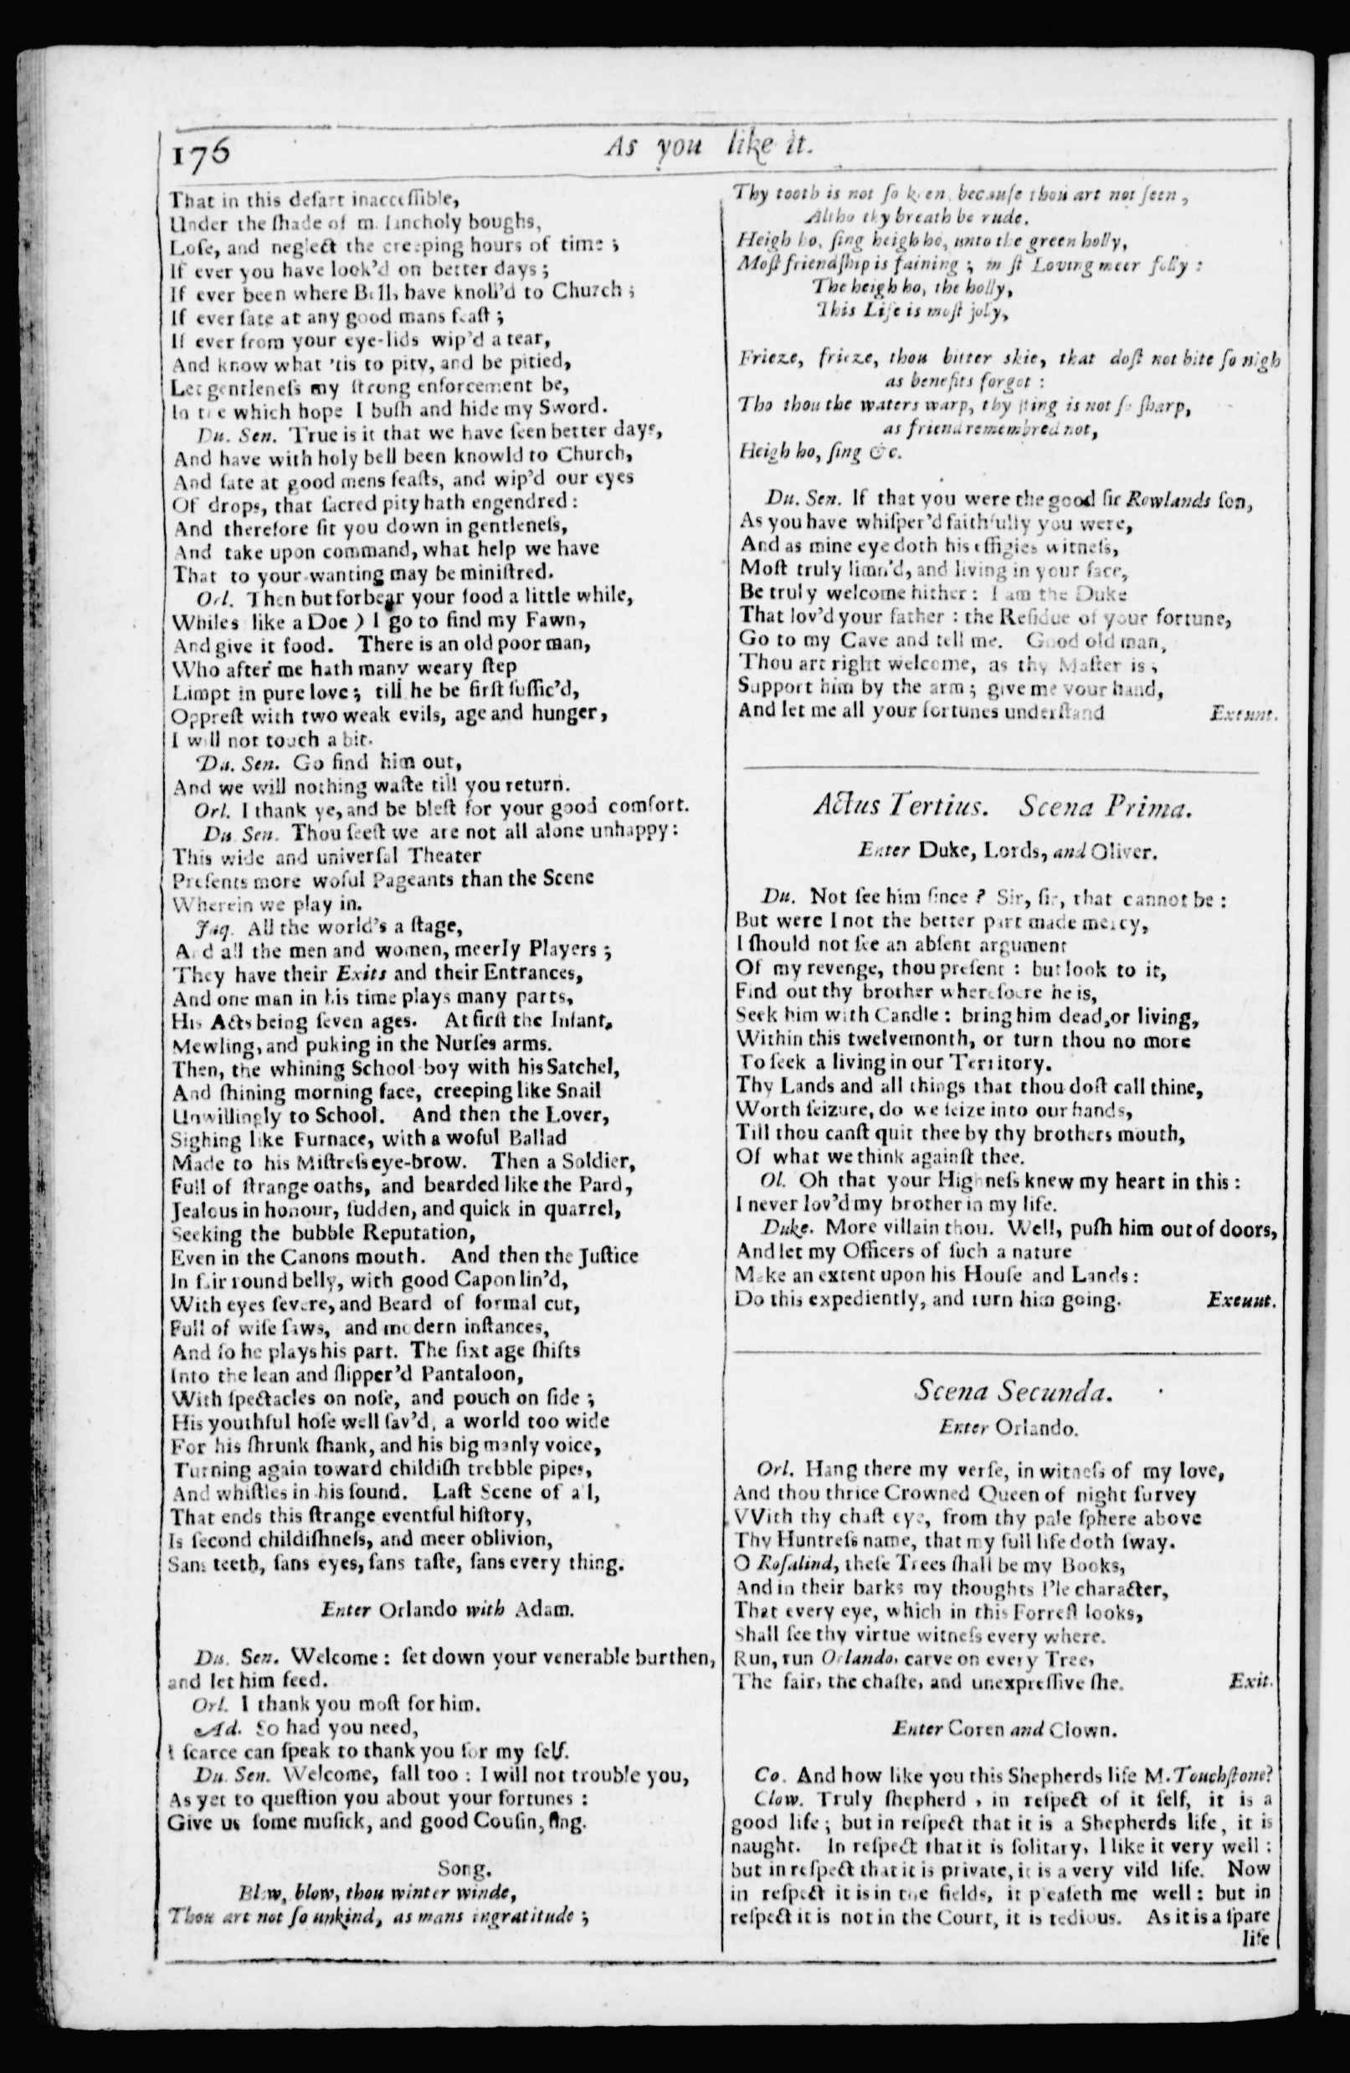 176
As you like it.
That in this desart inaccessible,
Under the shade of melancholy boughs,
Lose, and neglect the creeping hours of time;
If ever you have look'd on better days;
If ever been where Bells have knoll'd to Church;
If ever sate at any good mans feast;
If ever from your eye-lids wip'd a tear,
And know what 'tis to pity, and be pitied,
Let gentleness my strong enforcement be,
In the which hope I bush and hide my Sword.
Du. Sen. True is it that we have seen better days,
And have with holy bell been knowld to Church,
And sate at good mens feasts, and wip'd our eyes
Of drops, that sacred pity hath engendred:
And therefore sit you down in gentleness,
And take upon command, what help we have
That to your wanting may be ministred.
Orl. Then but forbear your food a little while,
Whiles like a Doe) I go to find my Fawn,
And give it food. There is an old poor man,
Who after me hath many weary step
Limpt in pure love; till he be first suffic'd,
Opprest with two weak evils, age and hunger,
I will not touch a bit.
Du. Sen. Go find him out,
And we will nothing waste till you return.
Orl. I thank ye, and be blest for your good comfort.
Du. Sen. Thou seest we are not all alone unhappy:
This wide and universal Theater
Presents more woful Pageants than the Scene
Wherein we play in.
Jaq. All the world's a stage,
And all the men and women, meerly Players;
They have their Exits and their Entrances,
And one man in his time plays many parts,
His Acts being seven ages. At first the Infant,
Mewling, and puking in the Nurses arms.
Then, the whining School-boy with his Satchel,
And shining morning face, creeping like Snail
Unwillingly to School. And then the Lover,
Sighing like Furnace, with a woful Ballad
Made to his Mistress eye-brow. Then a Soldier,
Full of strange oaths, and bearded like the Pard,
Jealous in honour, sudden, and quick in quarrel,
Seeking the bubble Reputation,
Even in the Canons mouth. And then the Justice
In fair round belly, with good Capon lin'd,
With eyes severe, and Beard of formal cut,
Full of wise saws, and modern instances,
And so he plays his part. The sixt age shifts
Into the lean and slipper'd Pantaloon,
With spectacles on nose, and pouch on side;
His youthful hose well sav'd, a world too wide
For his shrunk shank, and his big manly voice,
Turning again toward childish trebble pipes,
And whistles in his sound. Last Scene of all,
That ends this strange eventful history,
Is second childishness, and meer oblivion,
Sans teeth, sans eyes, sans taste, sans every thing.
Enter Orlando with Adam.
Du. Sen. Welcome: set down your venerable burthen,
and let him feed.
Orl. I thank you most for him.
Ad. So had you need,
I scarce can speak to thank you for my self.
Du. Sen. Welcome, fall too: I will not trouble you,
As yet to question you about your fortunes:
Give us some musick, and good Cousin, sing.
Song.
Blow, blow, thou winter winde,
Thou art not so unkind, as mans ingratitude;
Thy tooth is not so keen, because thou art not seen,
Altho thy breath be rude.
Heigh ho, sing heigh ho, unto the green holly,
Most friendship is faining; most Loving meer folly:
The heigh ho, the holly,
This Life is most jolly,
Frieze, frieze, thou bitter skie, that dost not bite so nigh
as benefits forgot:
Tho thou the waters warp, thy sting is not so sharp,
as friend remembred not,
Heigh ho, sing &c.
Du. Sen. If that you were the good sir Rowlands son,
As you have whisper'd faithfully you were,
And as mine eye doth his effigies witness,
Most truly limn'd, and living in your face,
Be truly welcome hither: I am the Duke
That lov'd your father: the Residue of your fortune,
Go to my Cave and tell me. Good old man,
Thou art right welcome, as thy Master is;
Support him by the arm; give me your hand,
And let me all your fortunes understand Exeunt.
Actus Tertius. Scena Prima.
Enter Duke, Lords, and Oliver.
Du. Not see him since? Sir, sir, that cannot be:
But were I not the better part made mercy,
I should not see an absent argument
Of my revenge, thou present: but look to it,
Find out thy brother wheresoere he is,
Seek him with Candle: bring him dead, or living,
Within this twelvemonth, or turn thou no more
To seek a living in our Territory.
Thy Lands and all things that thou dost call thine,
Worth seizure, do we seize into our hands,
Till thou canst quit thee by thy brothers mouth,
Of what we think against thee.
Ol. Oh that your Highness knew my heart in this:
I never lov'd my brother in my life.
Duke. More villain thou. Well, push him out of doors,
And let my Officers of such a nature
Make an extent upon his House and Lands:
Do this expediently, and turn him going. Exeunt.
Scena Secunda.
Enter Orlando.
Orl. Hang there my verse, in witness of my love,
And thou thrice Crowned Queen of night survey
VVith thy chast eye, from thy pale sphere above
Thy Huntress name, that my full life doth sway.
O Rosalind, these Trees shall be my Books,
And in their barks my thoughts I'le character,
That every eye, which in this Forrest looks,
Shall see thy virtue witness every where.
Run, run Orlando, carve on every Tree,
The fair, the chaste, and unexpressive she. Exit.
Enter Coren and Clown.
Co. And how like you this Shepherds life M. Touchstone?
Clow. Truly shepherd, in respect of it self, it is a
good life; but in respect that it is a Shepherds life, it is
naught. In respect that it is solitary, I like it very well:
but in respect that it is private, it is a very vild life. Now
in respect it is in the fields, it pleaseth me well: but in
respect it is not in the Court, it is tedious. As it is a spare
life